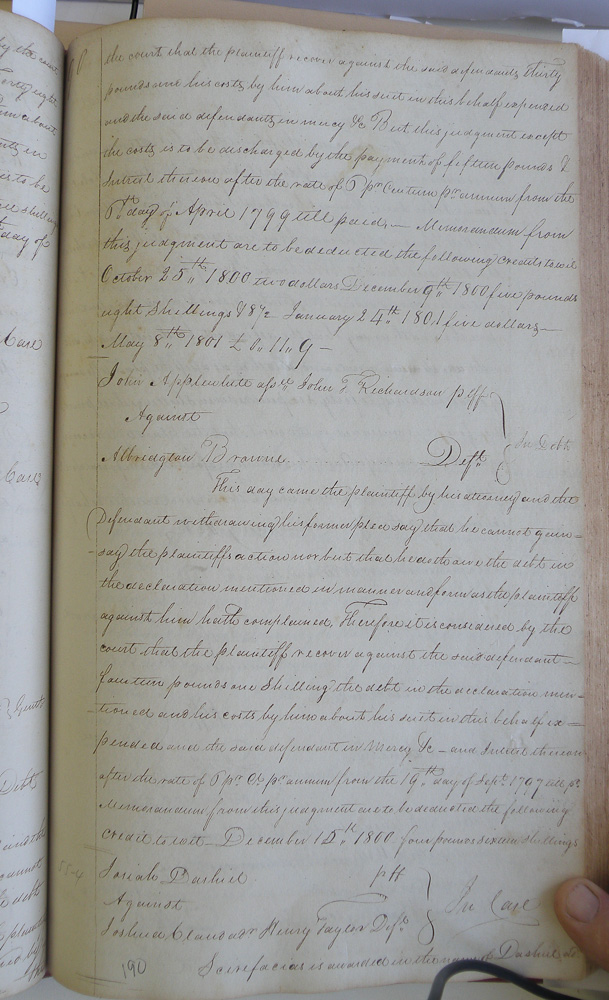 the court that the plaintiff recover against the said defendants thirty
pounds and his costs by him about his suit in this behalf expended
and the said defendants in mercy &c But this judgment except
the costs is to be discharged by the payment of fifteen pounds &
Interest thereon after the rate of 5 pr Centum pr annum from the
day of April 1799 till paid, — Memorandum from
this judgment are to be deducted the following credits to wit
October 25th 1800 two dollars December 9th 1800 five pounds
eight Shillings & 8½ January 24th 1801 five dollars —
May 8th 1801 £ 0,, 11,, 9 —
John Applewhite John T Richardson plff
Against
In Debt
Albridgton Browne Deft
This day came the plaintiff by his attorney and the
Defendant withdrawing his former plea say that he cannot gain=
say the plaintiffs action nor but that he doth owe the debt in
the declaration mentioned in manner and form as the plaintiff
against him hath complained, Therefore it is considered by the
court that the plaintiff recover against the said defendant —
fourteen pounds one Shilling the debt in the declaration men —
tioned and his costs by him about his suit in this behalf ex =
pended and the said defendant in Mercy &c — and Interest thereon
after the rate of 5 pr Ct pr annum from the 19th day of Sept 1797 till pd
Memorandum from this judgment are to be deducted the following
credit to wit December 15th 1800 four pounds sixteen shillings
Josiah Dashiel plff
Against
In Case
Joshua Henry Taylor Deft
Scirefacias is awarded in the name of Dashiel
190